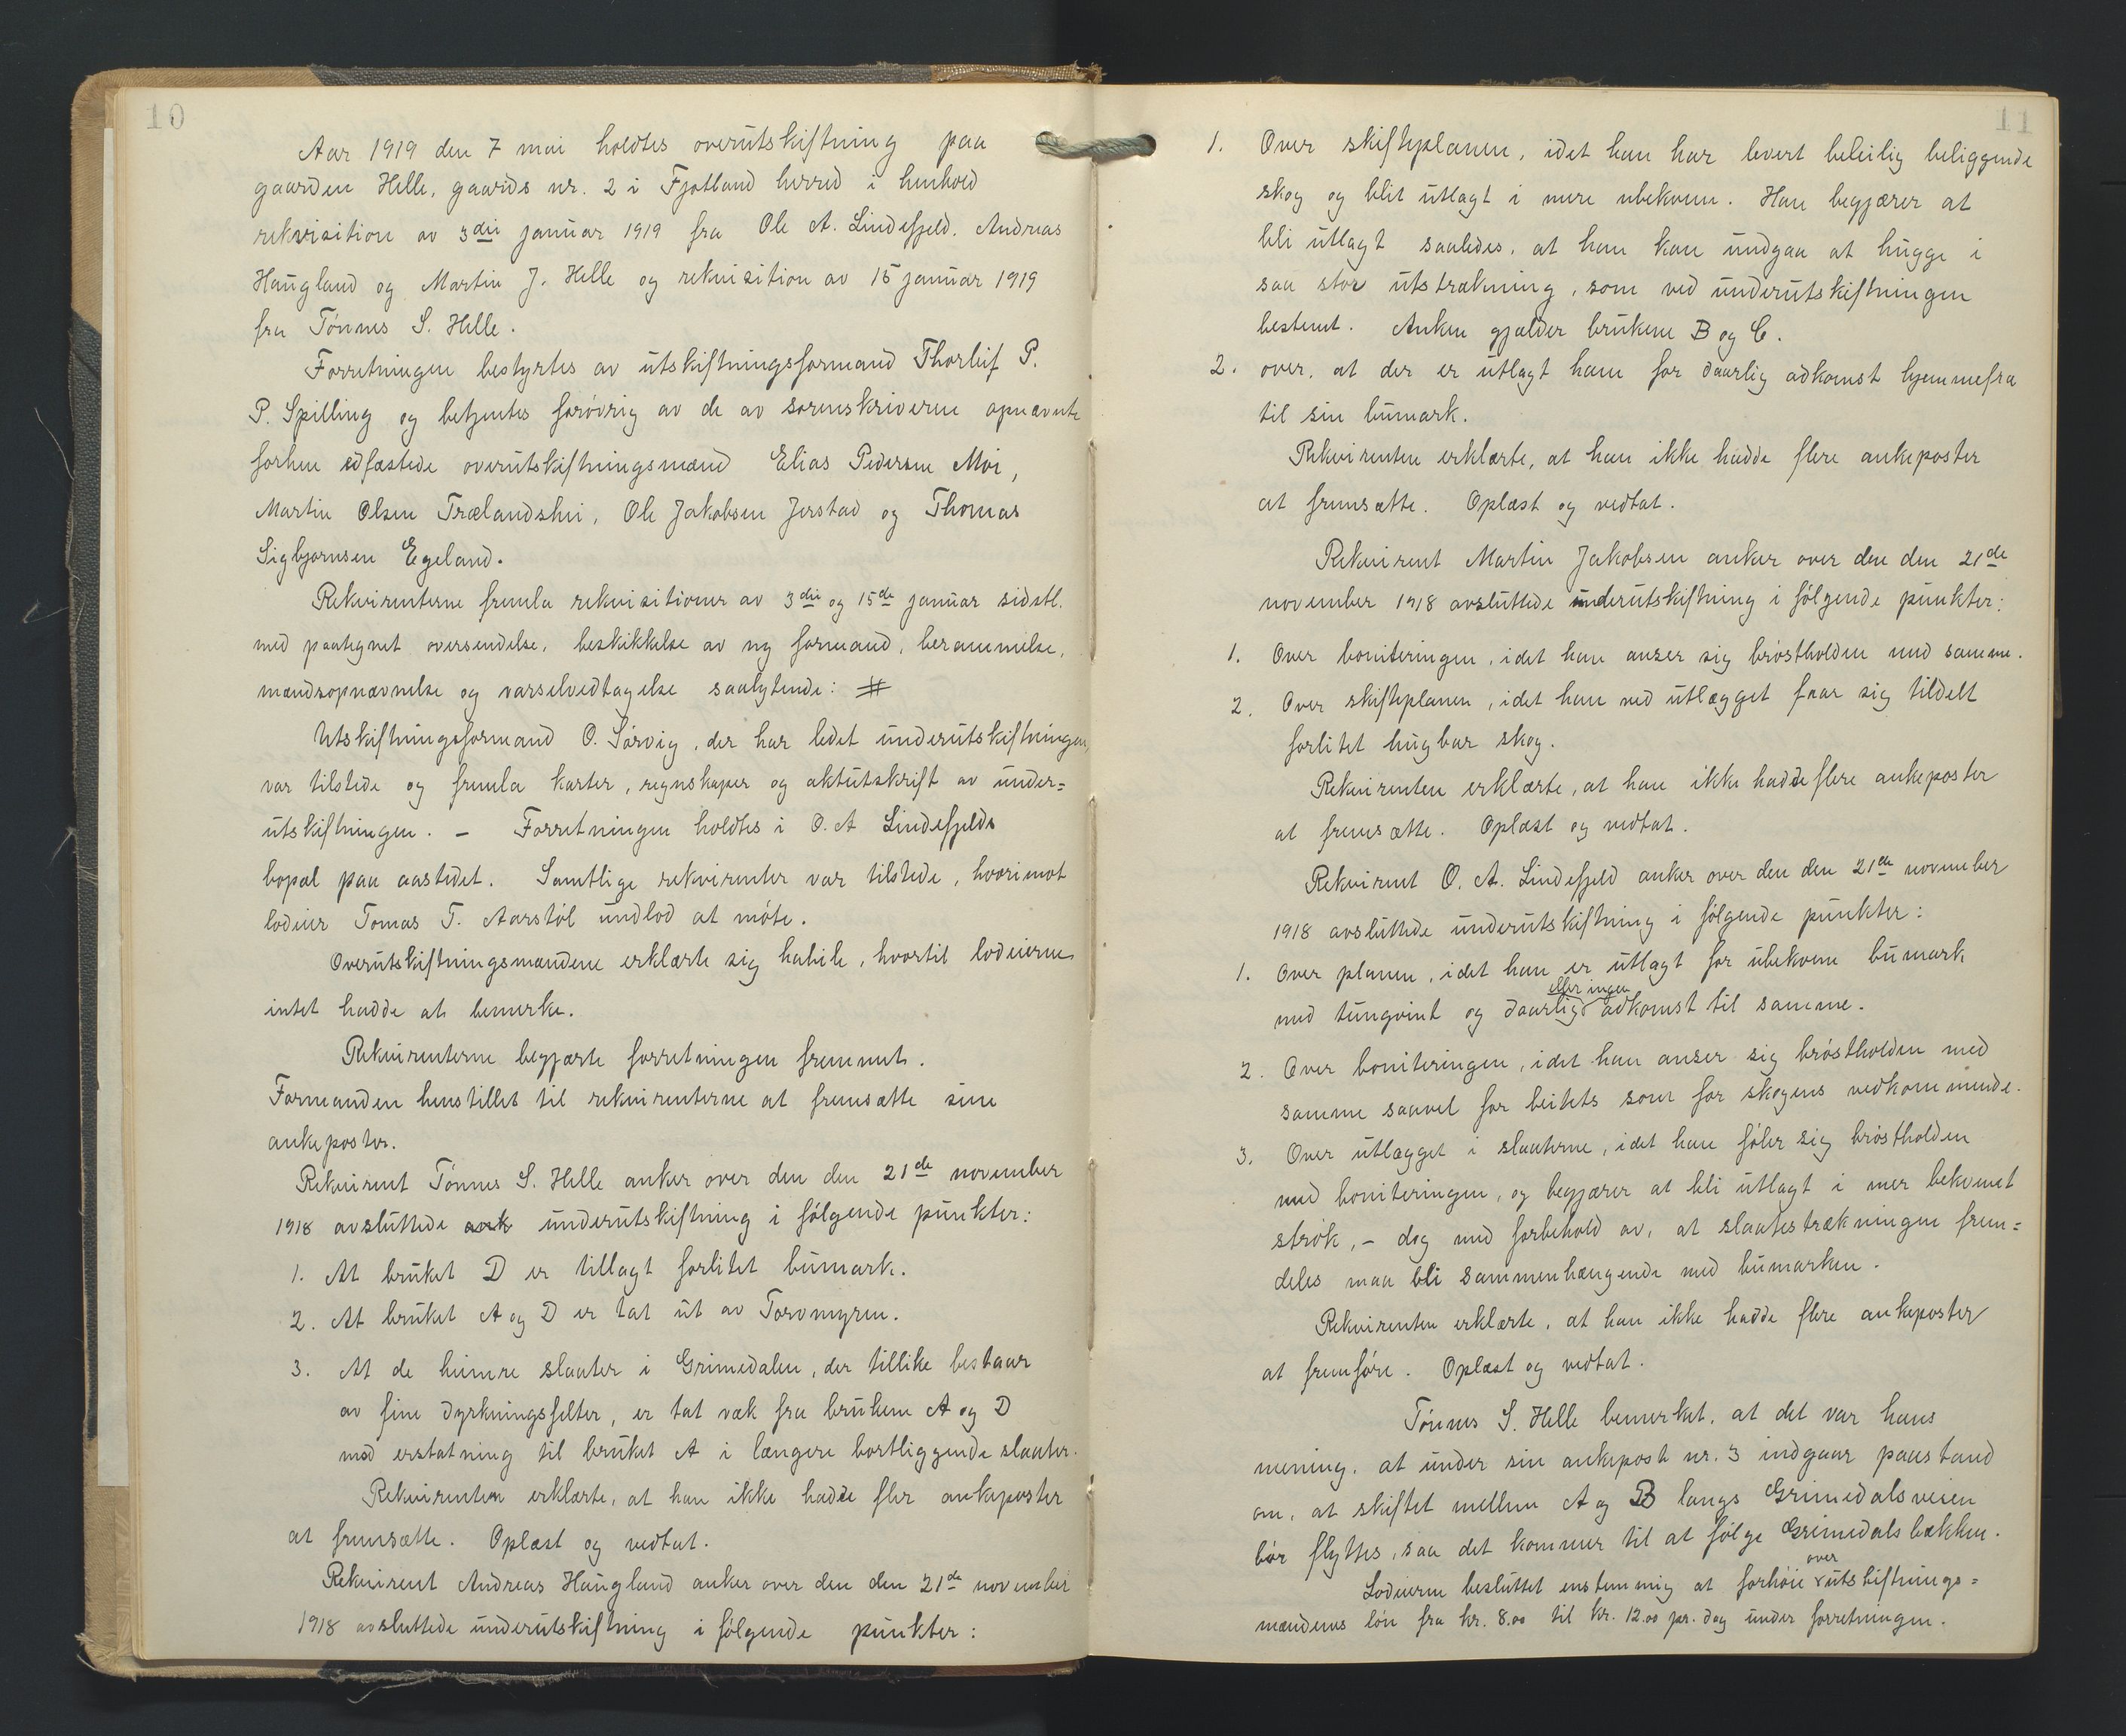 10
Aar 1919 den 7 mai holdtes overutskiftning paa
gaarden Helle, gaards nr. 2 i Fjotland herred i henhold
rekvisition av 3die januar 1919 fra Ole A. Lindefjeld, Andreas
Haugland og Martin J. Helle og rekvisition av 15 januar 1919
fra Tönnes S. Helle.
Forretningen bestyrtes av utskiftningsformand Thorleif P.
P. Spilling og betjentes forövrig av de av sorenskriveren opnævnte
forhen edfæstede overutskiftningsmænd Elias Pedersen Moi,
Martin Olsen Trælandshei, Ole Jakobsen Jerstad og Thomas
Sigbjørnsen Egeland.
Rekvirenterne fremla rekvisitioner av 3die og 15de januar sidstl.
med paategnet oversendelse, beskikkelse av ny formand, berammelse,
mændsopnævnelse og varselvedtagelse saalytende: #
Utskiftningsformand O. Sørvig, der har ledet underutskiftningen,
var tilstede og fremla karter, regnskaper og aktutskrift av under=
utskiftningen. - Forretningen holdtes i O. A Lindefjelds
bopæl paa aastedet. Samtlige rekvirenter var tilstede, hvorimot
lodeier Tomas T. Aarstöl undlod at möte.
Overutskiftningsmændene erklærte sig habile, hvortil lodeierne
intet hadde at bemerke.
Rekvirenterne begjærte forretningen fremmet.
Formanden henstillet til rekvirenterne at fremsætte sine
ankeposter.
Rekvirent Tönnes S. Helle anker over den den 21de november
1918 avsluttede ank underutskiftning i fölgende punkter:
1. At bruket D er tillagt forlitet bumark.
2. At bruket A og D er tat ut av Torvmyren.
3. At de hiemre slaater i Grimedalen, der tillike bestaar
av fine dyrkningsfelter, er tat væk fra brukene A og D
mod erstatning til bruket A i længere bortliggende slaater.
Rekvirenten erklærte, at han ikke hadde fler ankeposter
at fremsætte. Oplæst og vedtat.
Rekvirent Andreas Haugland anker over den den 21de november
1918 avsluttede underutskiftning i fölgende punkter:
11
1. Over skifteplanen, idet han har levert beleilig beliggende
skog og blit utlagt i mere ubekvem. Han begjærer at
bli utlagt saaledes, at han kan undgaa at hugge i
saa stor utstrækning, som ved underutskiftningen
bestemt. Anken gjælder brukene B og C.
2. over, at der er utlagt ham for daarlig adkomst hjemmefra
til sin bumark.
Rekvirenten erklærte, at han ikke hadde flere ankeposter
at fremsætte. Oplæst og vedtat.
Rekvirent Martin Jakobsen anker over den den 21de
november 1918 avsluttede underutskiftning i fölgende punkter:
1. Over boniteringen, idet han anser sig bröstholden med samme.
2. Over skifteplanen, idet han ved utlægget faar sig tildelt
forlitet hugbar skog.
Rekvirenten erklærte, at han ikke hadde flere ankeposter
at fremsætte. Oplæst og vedtat.
Rekvirent O. A. Lindefjeld anker over den den 21de november
1918 avsluttede underutskiftning i fölgende punkter:
1. Over planen, idet han er utlagt for ubekvem bumark
eller ingen
med tungvint og daarlig adkomst til samme.
2. Over boniteringen, idet han anser sig bröstholden med
samme saavel for beitets som for skogens vedkommende.
3. Over utlægget i slaaterne, idet han föler sig bröstholden
med boniteringen, og begjærer at bli utlagt i mer bekvemt
strök, - dog med forbehold av, at slaatestrækningen frem=
deles maa bli sammenhængende med bumarken.
Rekvirenten erklærte, at han ikke hadde flere ankeposter
at fremföre. Oplæst og vedtat.
Tönnes S. Helle bemerket, at det var hans
mening, at under sin ankepost nr. 3 indgaar paastand
om, at skiftet mellem A og B langs Grimedalsveien
bör flyttes, saa det kommer til at fölge Grimedalsbækken.
over
Lodeierne besluttet enstemmig at forhöie utskiftnings=
mændenes lön fra kr. 8.00 til kr. 12.00 pr. dag under forretningen.